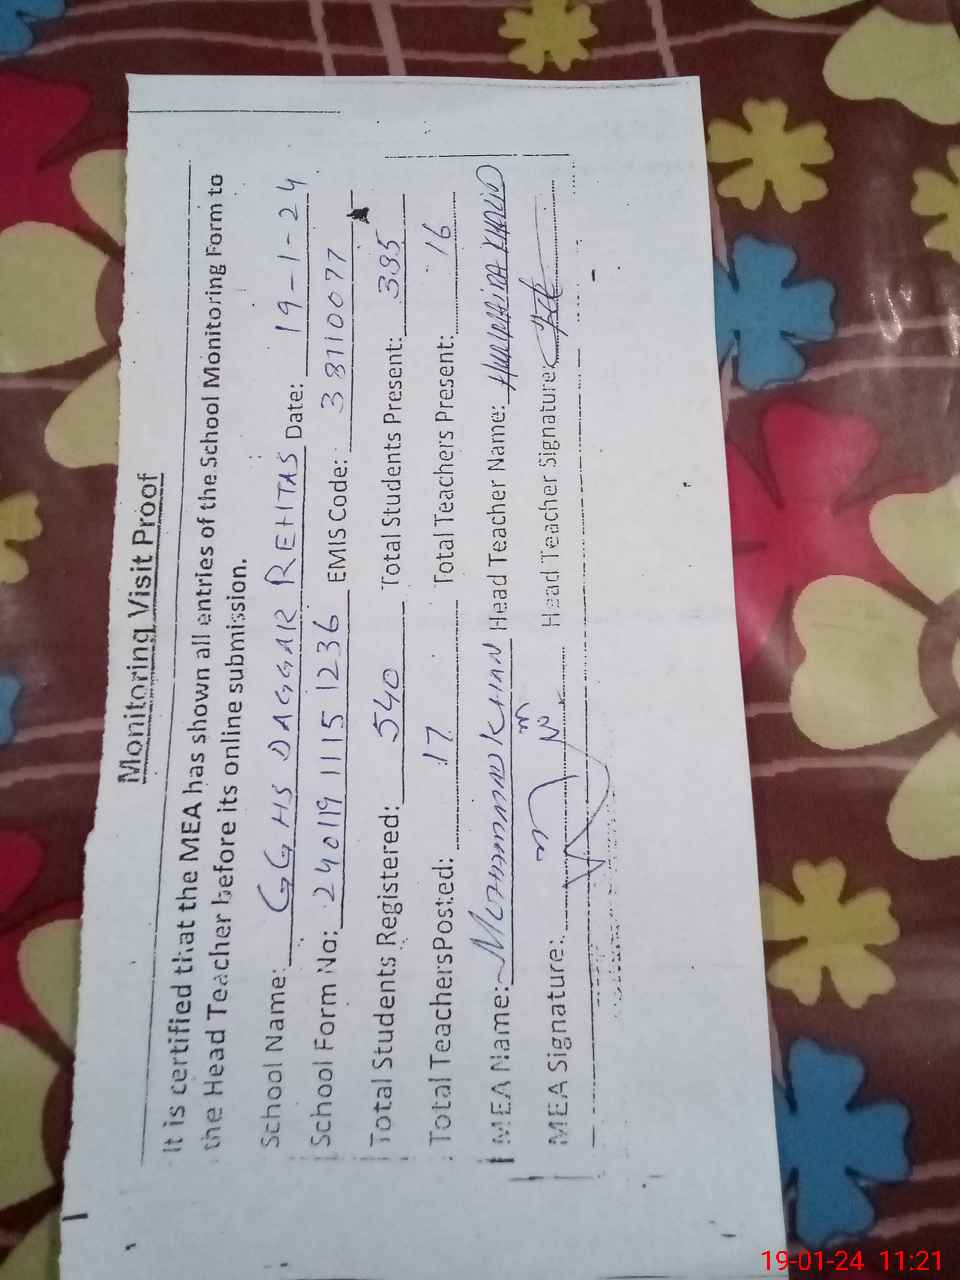 Monitoring Visit Proof
It is certified that the MEA has shown all entries of the School Monitoring Form to
the Head Teacher before its online submission.
School Name: GGHS DAGGAR REHTAS Date: 19-1-24
School Form No: 240119 1115 1236 EMIS Code: 38110077
Total Students Registered: 540 Total Students Present: 395
Total Teachers Posted: 17 Total Teachers Present: 16
MEA Name: MUHAMMAD KHAN Head Teacher Name: HUMAIRA KHALID
MEA Signature: Head Teacher Signature:
19-01-24 11:21